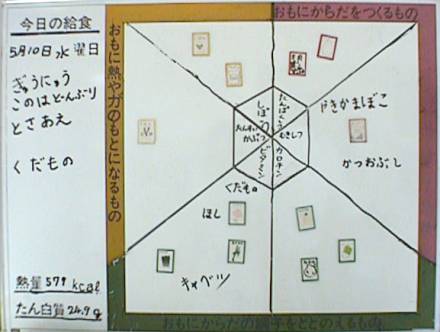 今日の給食
5月10日水曜日
ぎゅうにゅう
このはどんぶり
とさあえ
くだもの
熱量579kcal
たん白質24.9g
おもに熱や力のもとになるもの
おもにからだをつくるもの
しぼう
たんぱくしつ
むきしつ
たんすい
かぶつ
ビタミン
カロチン
やきかまぼこ
かつおぶし
くだもの
ほし
キャベツ
おもにからだの調子をととのえるもの